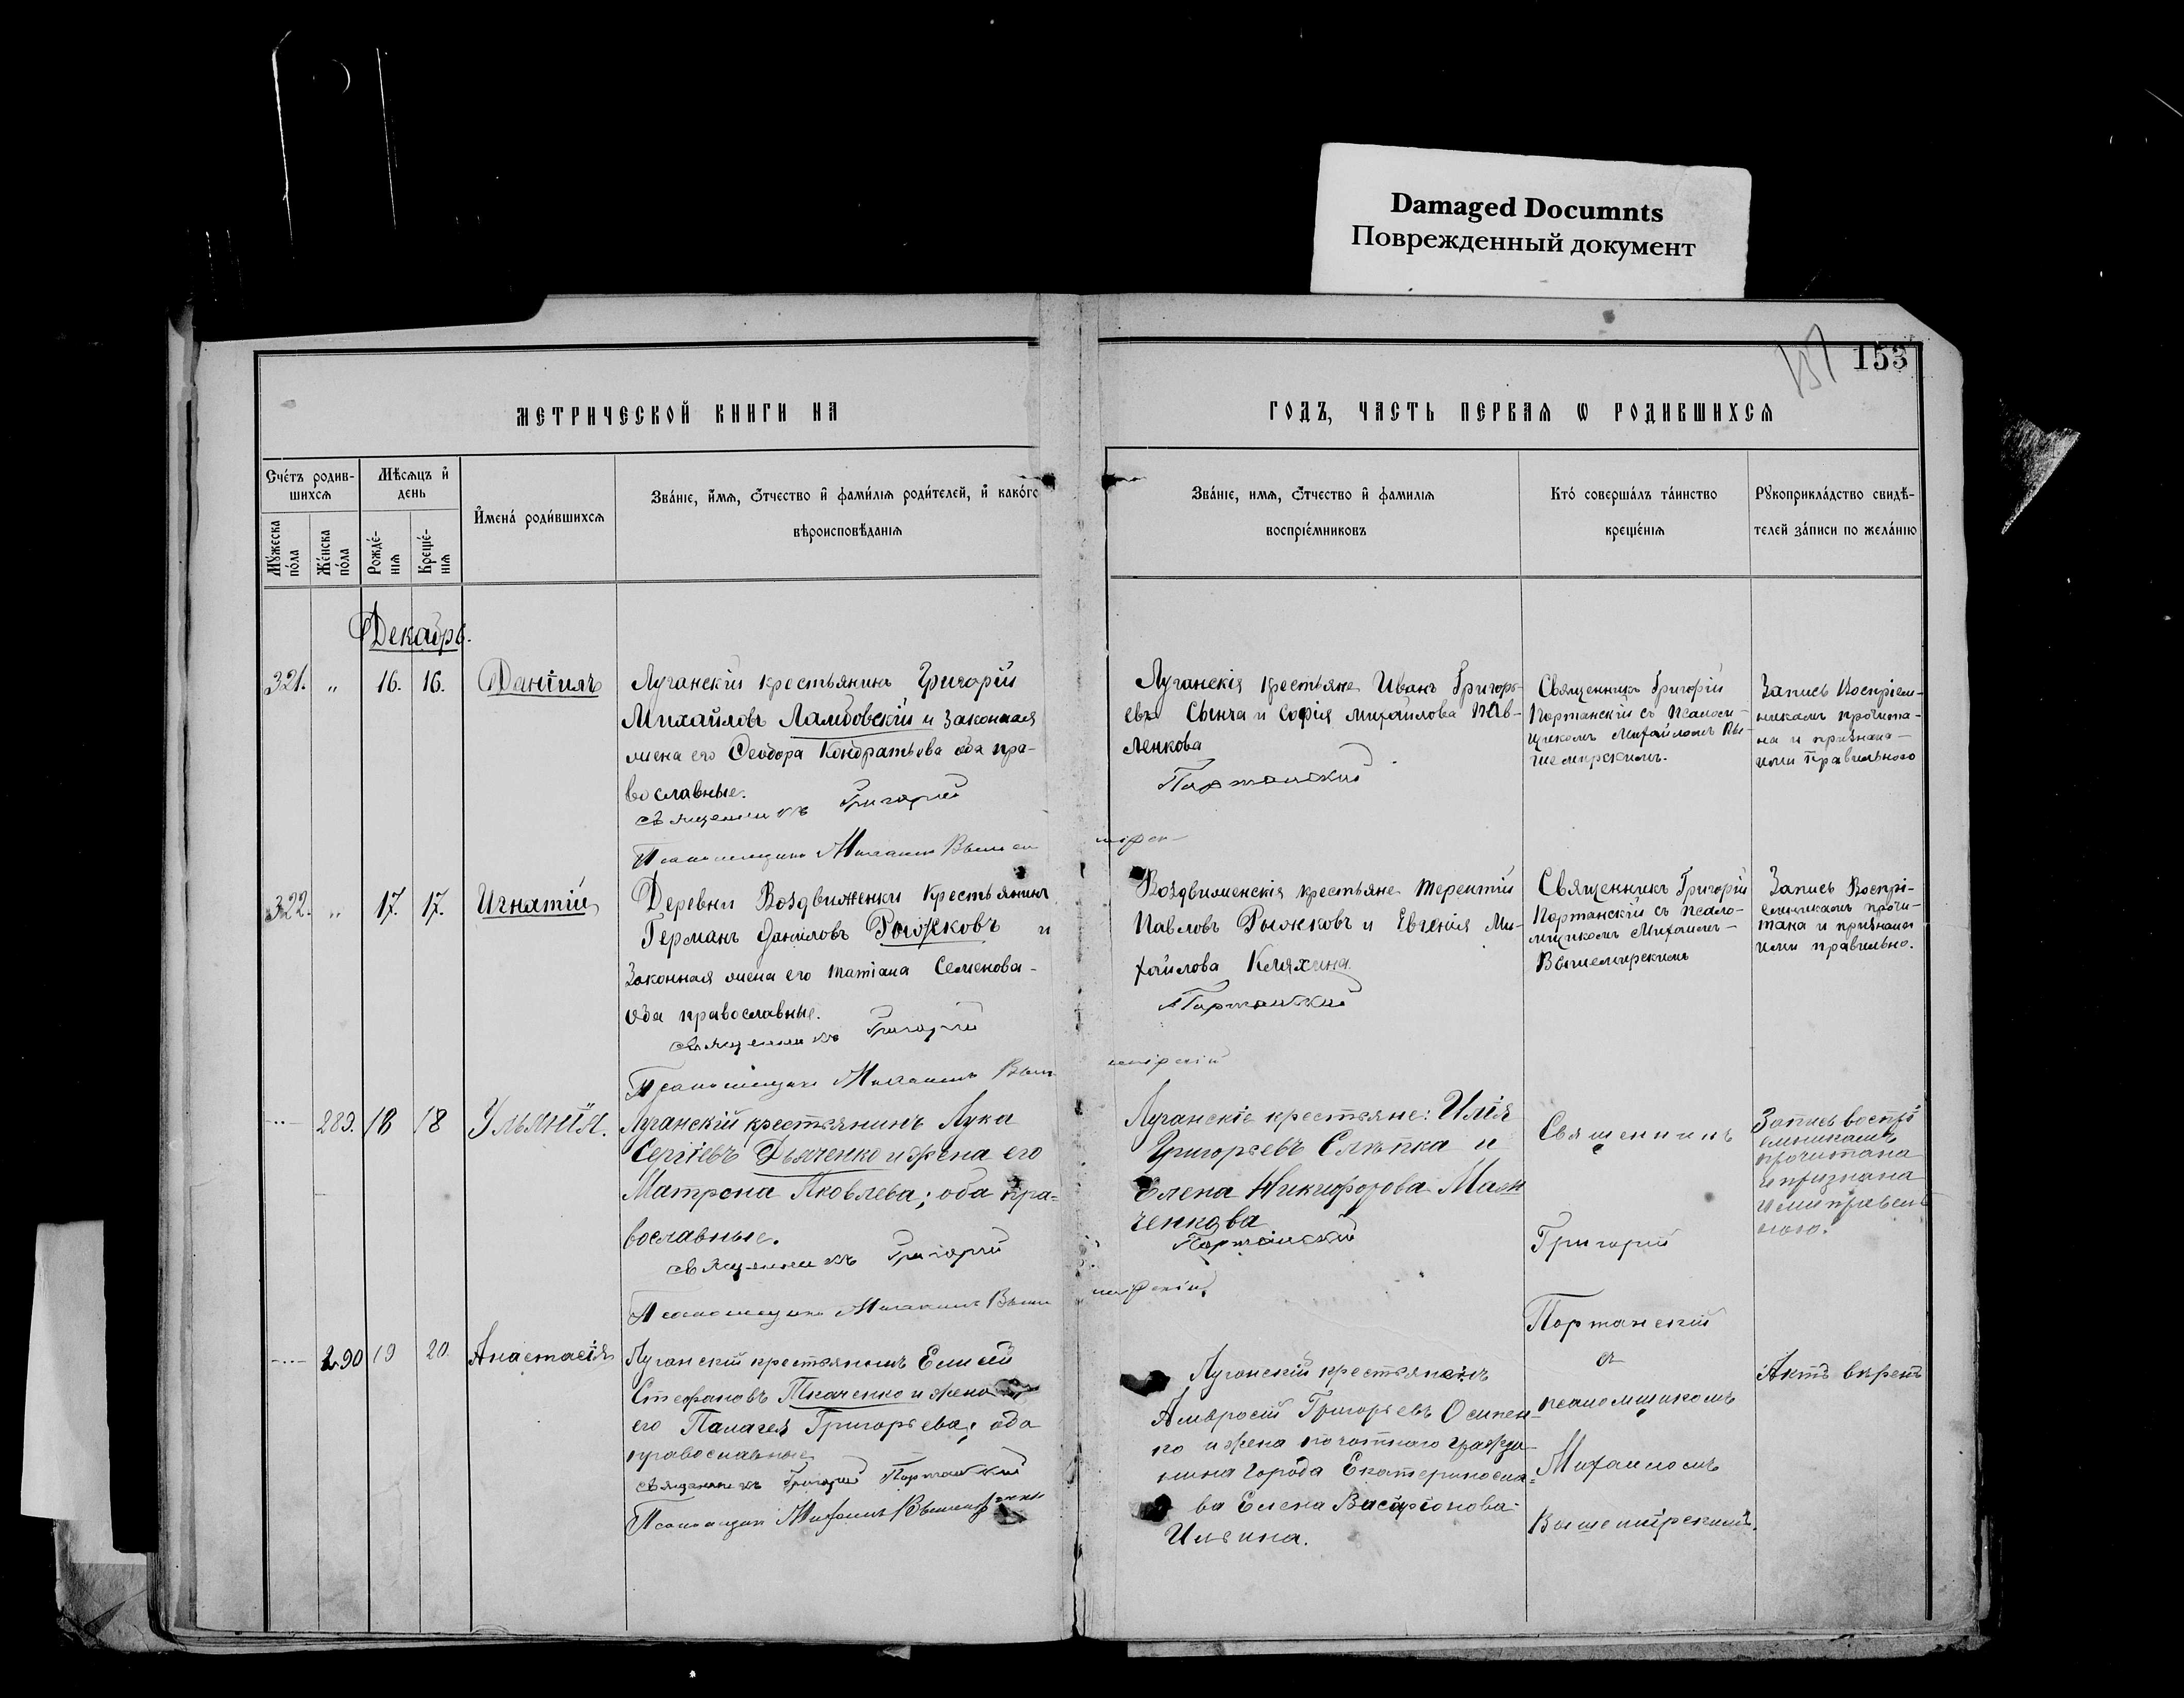 Damaged Documnts
Поврежденный документ
153
МЕТРИЧЕСКОЙ КНИГИ НА
ГОДЪ, ЧАСТЬ ПЕРВАѦ Ѡ РОДИВШИХСѦ
Счéтъ родив-
шихсѧ
Мѣсѧцъ и҆
день
Мꙋ́жеска
по́ла
Же́нска
по́ла
Рожде́-
нїѧ
Креще́-
нїѧ
И҆мена́ роди́вшихсѧ
Зва́нїе, и҆́мѧ, ѻ҆́тчество и҆ фами́лїѧ роди́телей, и҆ како́гѡ
вѣроисповѣ́данїѧ
Зва́нїе, имѧ, ѻ҆́тчество и҆ фамилїѧ
воспрїе́мниковъ
Кто́ соверша́лъ та́инство
креще́нїѧ
Рꙋкоприкла́дство свидѣ́-
телей за́писи по жела́нїю
Декабрь.
321. " 16. 16. Данiилъ
Луганскiй крестьянинъ Григорiй
Михайловъ Ламбовскiй и законная
жена его Феодора Кондратьева оба пра-
вославные.
священникъ Григорiй
Псаломщикъ Михаилъ Вышеми
Луганскiя крестьяне Иванъ Григорь-
евъ Сынча и Софiя Михайлова Пав-
ленкова
Портанскiй
Священникъ Григорiй
Портанскiй съ псалом-
щикомъ Михаиломъ Вы-
шемирскимъ.
Запись воспрiем-
никамъ прочита-
на и признана
ими правильною
322. " 17. 17. Игнатiй
Деревни Воздвиженки крестьянинъ
Германъ Даниловъ Рыжковъ и
законная жена его Татiана Семенова-
оба православные.
священникъ Григорiй
Псаломщикъ Михаилъ Выше
Воздвиженскiя крестьяне Терентiй
Павловъ Рыжковъ и Евгенiя Ми-
хайлова Кляхина
Портанскiй
мiрскiй
Священникъ Григорiй
Портанскiй съ псало-
мщикомъ Михаиломъ
Вышемирскимъ
Запись воспрi-
емникамъ прочи-
тана и признана
ими правильно.
289. 18 18 Ульянiя.
Луганскiй крестьянинъ Лука
Сергiевъ Дьяченко и жена его
Матрона Яковлева; оба пра-
вославные.
священникъ Григорiй
Псаломщикъ Михаилъ Выше
Луганскiе крестьяне: Илiя
Григорьевъ Слѣпка и
Елена Никифорова
Портанскiй
мiрскiй.
Священникъ
Григорiй
Портанскiй
съ
псаломщикомъ
Михаиломъ
Вышемiрскимъ.
Запись воспрi
емникамъ
прочитана
и признана
ими правиль
ною.
290 19 20. Анастасiя
Луганскiй крестьянинъ Елисей
Стефановъ Ткаченко и жена
его Палагея Григорьева; оба
православные
священникъ Григорiй Портанскiй
Псаломщикъ Михаилъ Вышемiрскiй
Луганскiй крестьянинъ
Амвросiй Григорьевъ Осипен-
ко и жена почотнаго гражда-
нина города Екатериносла-
ва Елена Висарiонова
Ильина.
Актъ вѣренъ